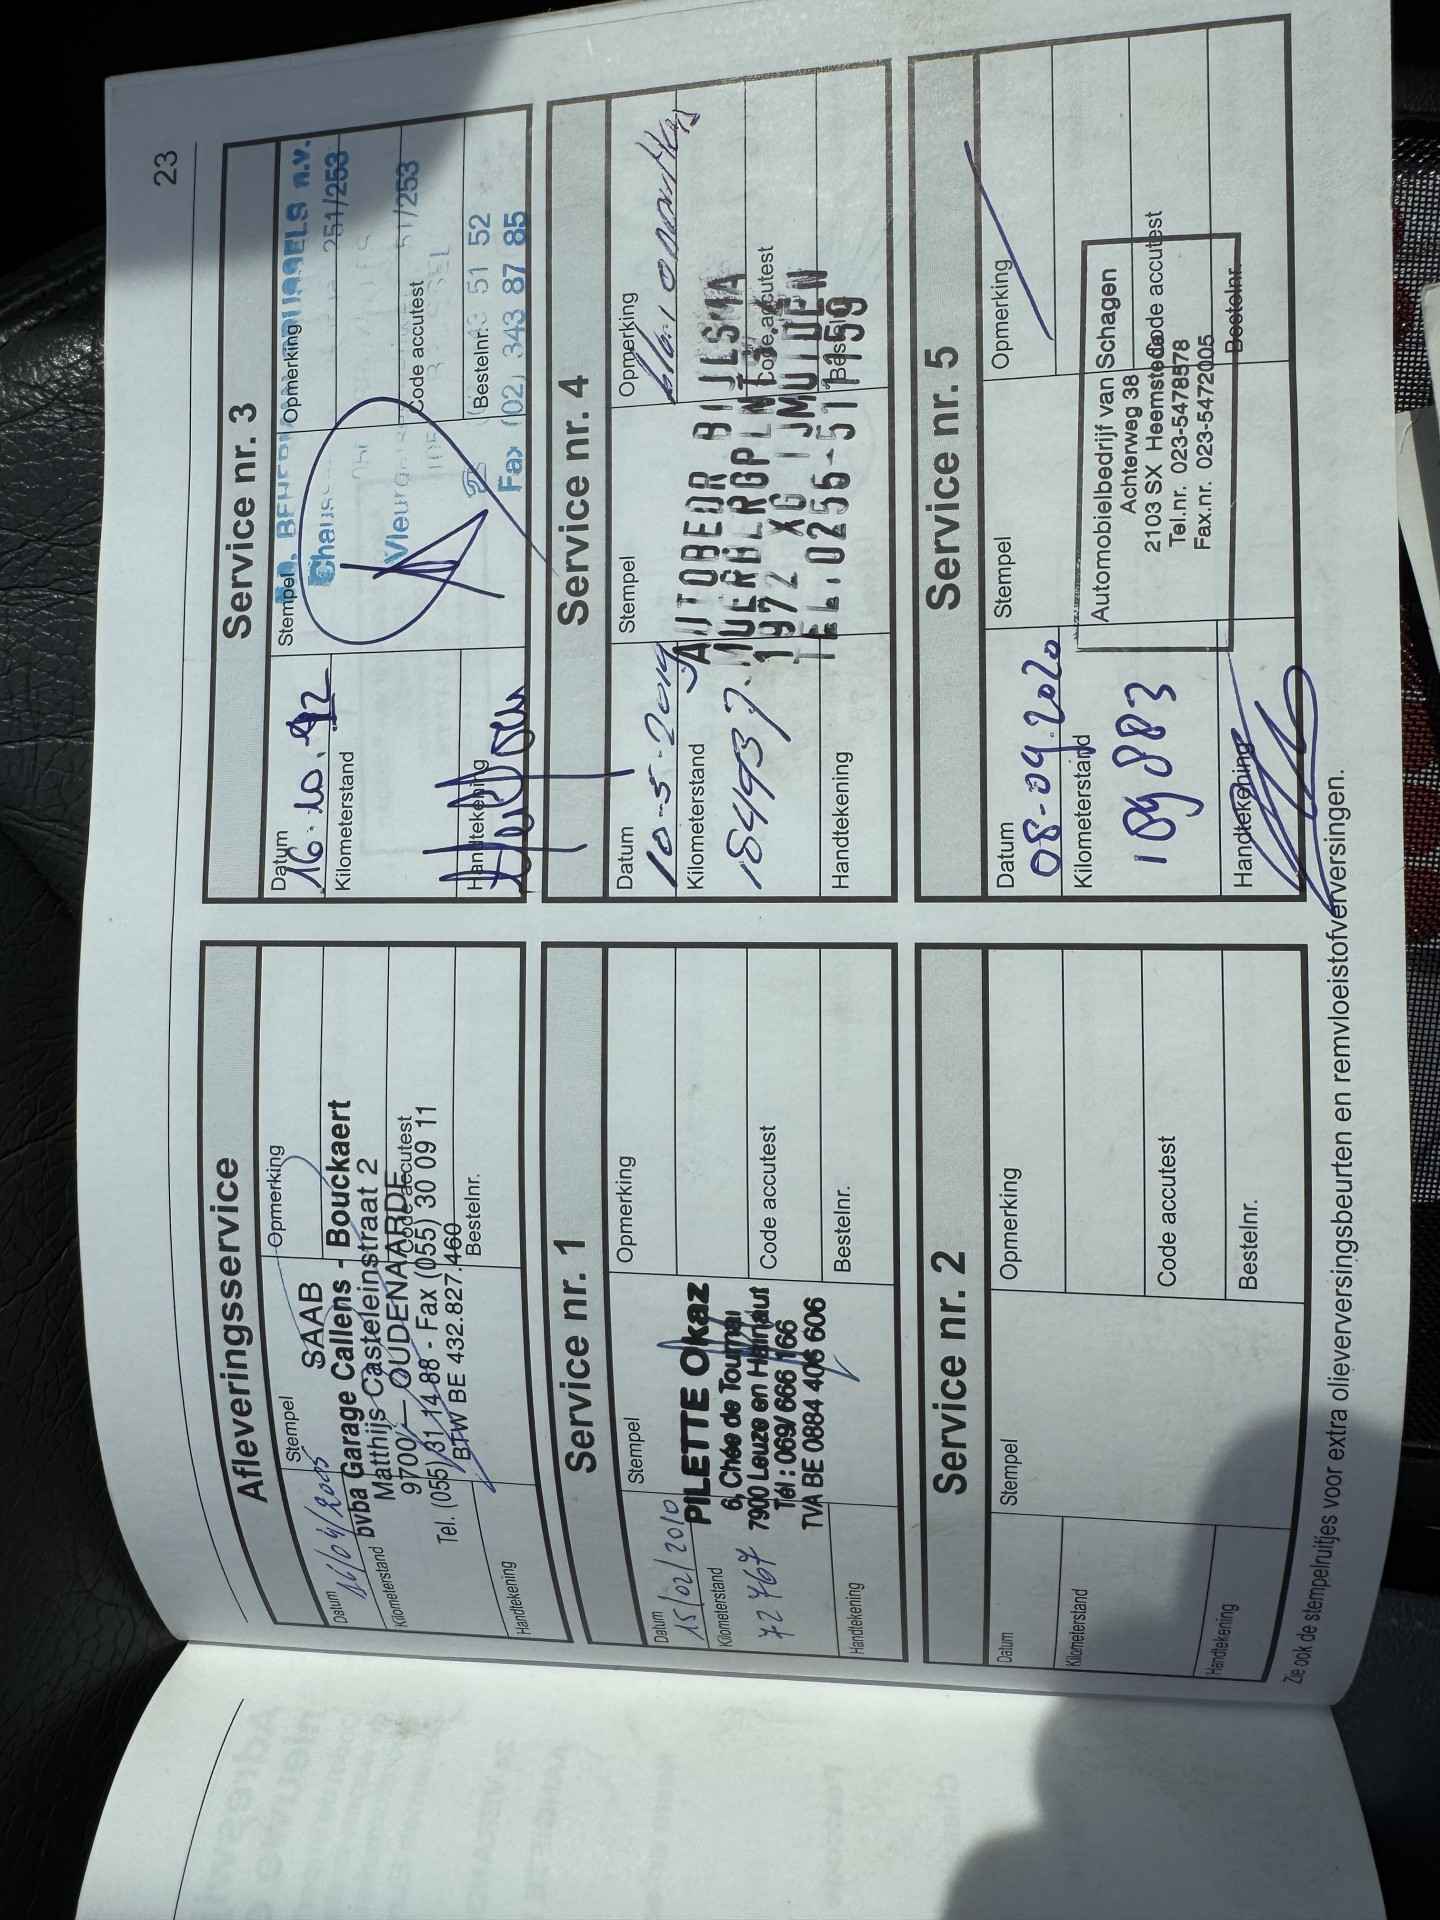 23
Afleveringsservice
Datum
16/04/2005
Stempel
Opmerking
SAAB
bvba Garage Callens - Bouckaert
Matthijs Casteleinstraat 2
9700 — OUDENAARDE
Tel. (055) 31 14 88 - Fax (055) 30 09 11
BTW BE 432.827.460
Kilometerstand
Code accutest
Bestelnr.
Handtekening
Service nr. 1
Datum
15/02/2010
Stempel
Opmerking
PILETTE Okaz
6, Chée de Tournai
7900 Leuze en Hainaut
Tél : 069/ 666 166
TVA BE 0884 406 606
Kilometerstand
72767
Code accutest
Bestelnr.
Handtekening
Service nr. 2
Datum
Stempel
Opmerking
Kilometerstand
Code accutest
Bestelnr.
Handtekening
Service nr. 3
Datum
16.10.
Stempel
Opmerking
n.v.
251/253
Vleurg
51/253
51 52
Fax (02) 343 87 85
Kilometerstand
Code accutest
Bestelnr.
Handtekening
Service nr. 4
Datum
10-5-2019
Stempel
Opmerking
AUTOBEDR BIJLSMA
1972 XG IJMUIDEN
TEL.0255-511159
Kilometerstand
184937
Code accutest
Bestelnr.
Handtekening
Service nr. 5
Datum
08-09-2020
Stempel
Opmerking
Automobielbedrijf van Schagen
Achterweg 38
2103 SX Heemstede
Tel.nr. 023-5478578
Fax.nr. 023-5472005
Kilometerstand
189883
Code accutest
Bestelnr.
Handtekening
Zie ook de stempelruitjes voor extra olieverversingsbeurten en remvloeistofverversingen.